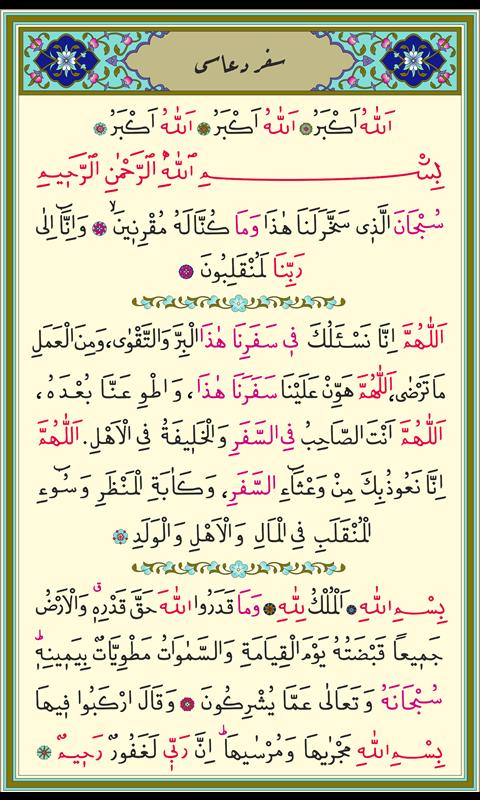 سفر دعاسى
اَللّٰهُ اَكْبَرُ اَللّٰهُ اَكْبَرُ اَللّٰهُ اَكْبَرُ
بِسْــــمِ اللّٰهِ الرَّحْمٰنِ الرَّحِيمِ
سُبْحَانَ الَّذِى سَخَّرَلَنَا هٰذَا وَمَا كُنَّالَهُ مُقْرِنِينَۙ وَاِنَّٓا اِلٰى
رَبِّنَا لَمُنْقَلِبُونَ
اَللّٰهُمَّ اِنَّا نَسْـَٔلُكَ فِى سَفَرِنَا هٰذَا الْبِرَّ وَالتَّقْوٰى، وَمِنَ الْعَمَلِ
مَا تَرْضٰى، اَللّٰهُمَّ هَوِّنْ عَلَيْنَا سَفَرَنَا هٰذَا، وَاطْوِ عَنَّا بُعْدَهُ،
اَللّٰهُمَّ اَنْتَ الصَّاحِبُ فِى السَّفَرِ وَالْخَلِيفَةُ فِى الْاَهْلِ. اَللّٰهُمَّ
اِنَّا نَعُوذُبِكَ مِنْ وَعْثَٓاءِ السَّفَرِ، وَكَاٰبَةِ الْمَنْظَرِ وَسُٓوءِ
الْمُنْقَلَبِ فِى الْمَالِ وَالْاَهْلِ وَالْوَلَدِ
بِسْــمِ اللّٰهِ اَلْمُلْكُ لِلّٰهِ وَمَا قَدَرُوا اللّٰهَ حَقَّ قَدْرِهِۗ وَالْاَرْضُ
جَمِيعاً قَبْضَتُهُ يَوْمَ الْقِيَامَةِ وَالسَّمٰوَاتُ مَطْوِيَّاتٌ بِيَمِينِهِۜ
سُبْحَانَهُ وَتَعَالٰى عَمَّا يُشْرِكُونَ وَقَالَ ارْكَبُوا فِيهَا
بِسْــمِ اللّٰهِ مَجْرٰۭيهَا وَمُرْسٰيهَاۜ اِنَّ رَبِّى لَغَفُورٌ رَحِيمٌ